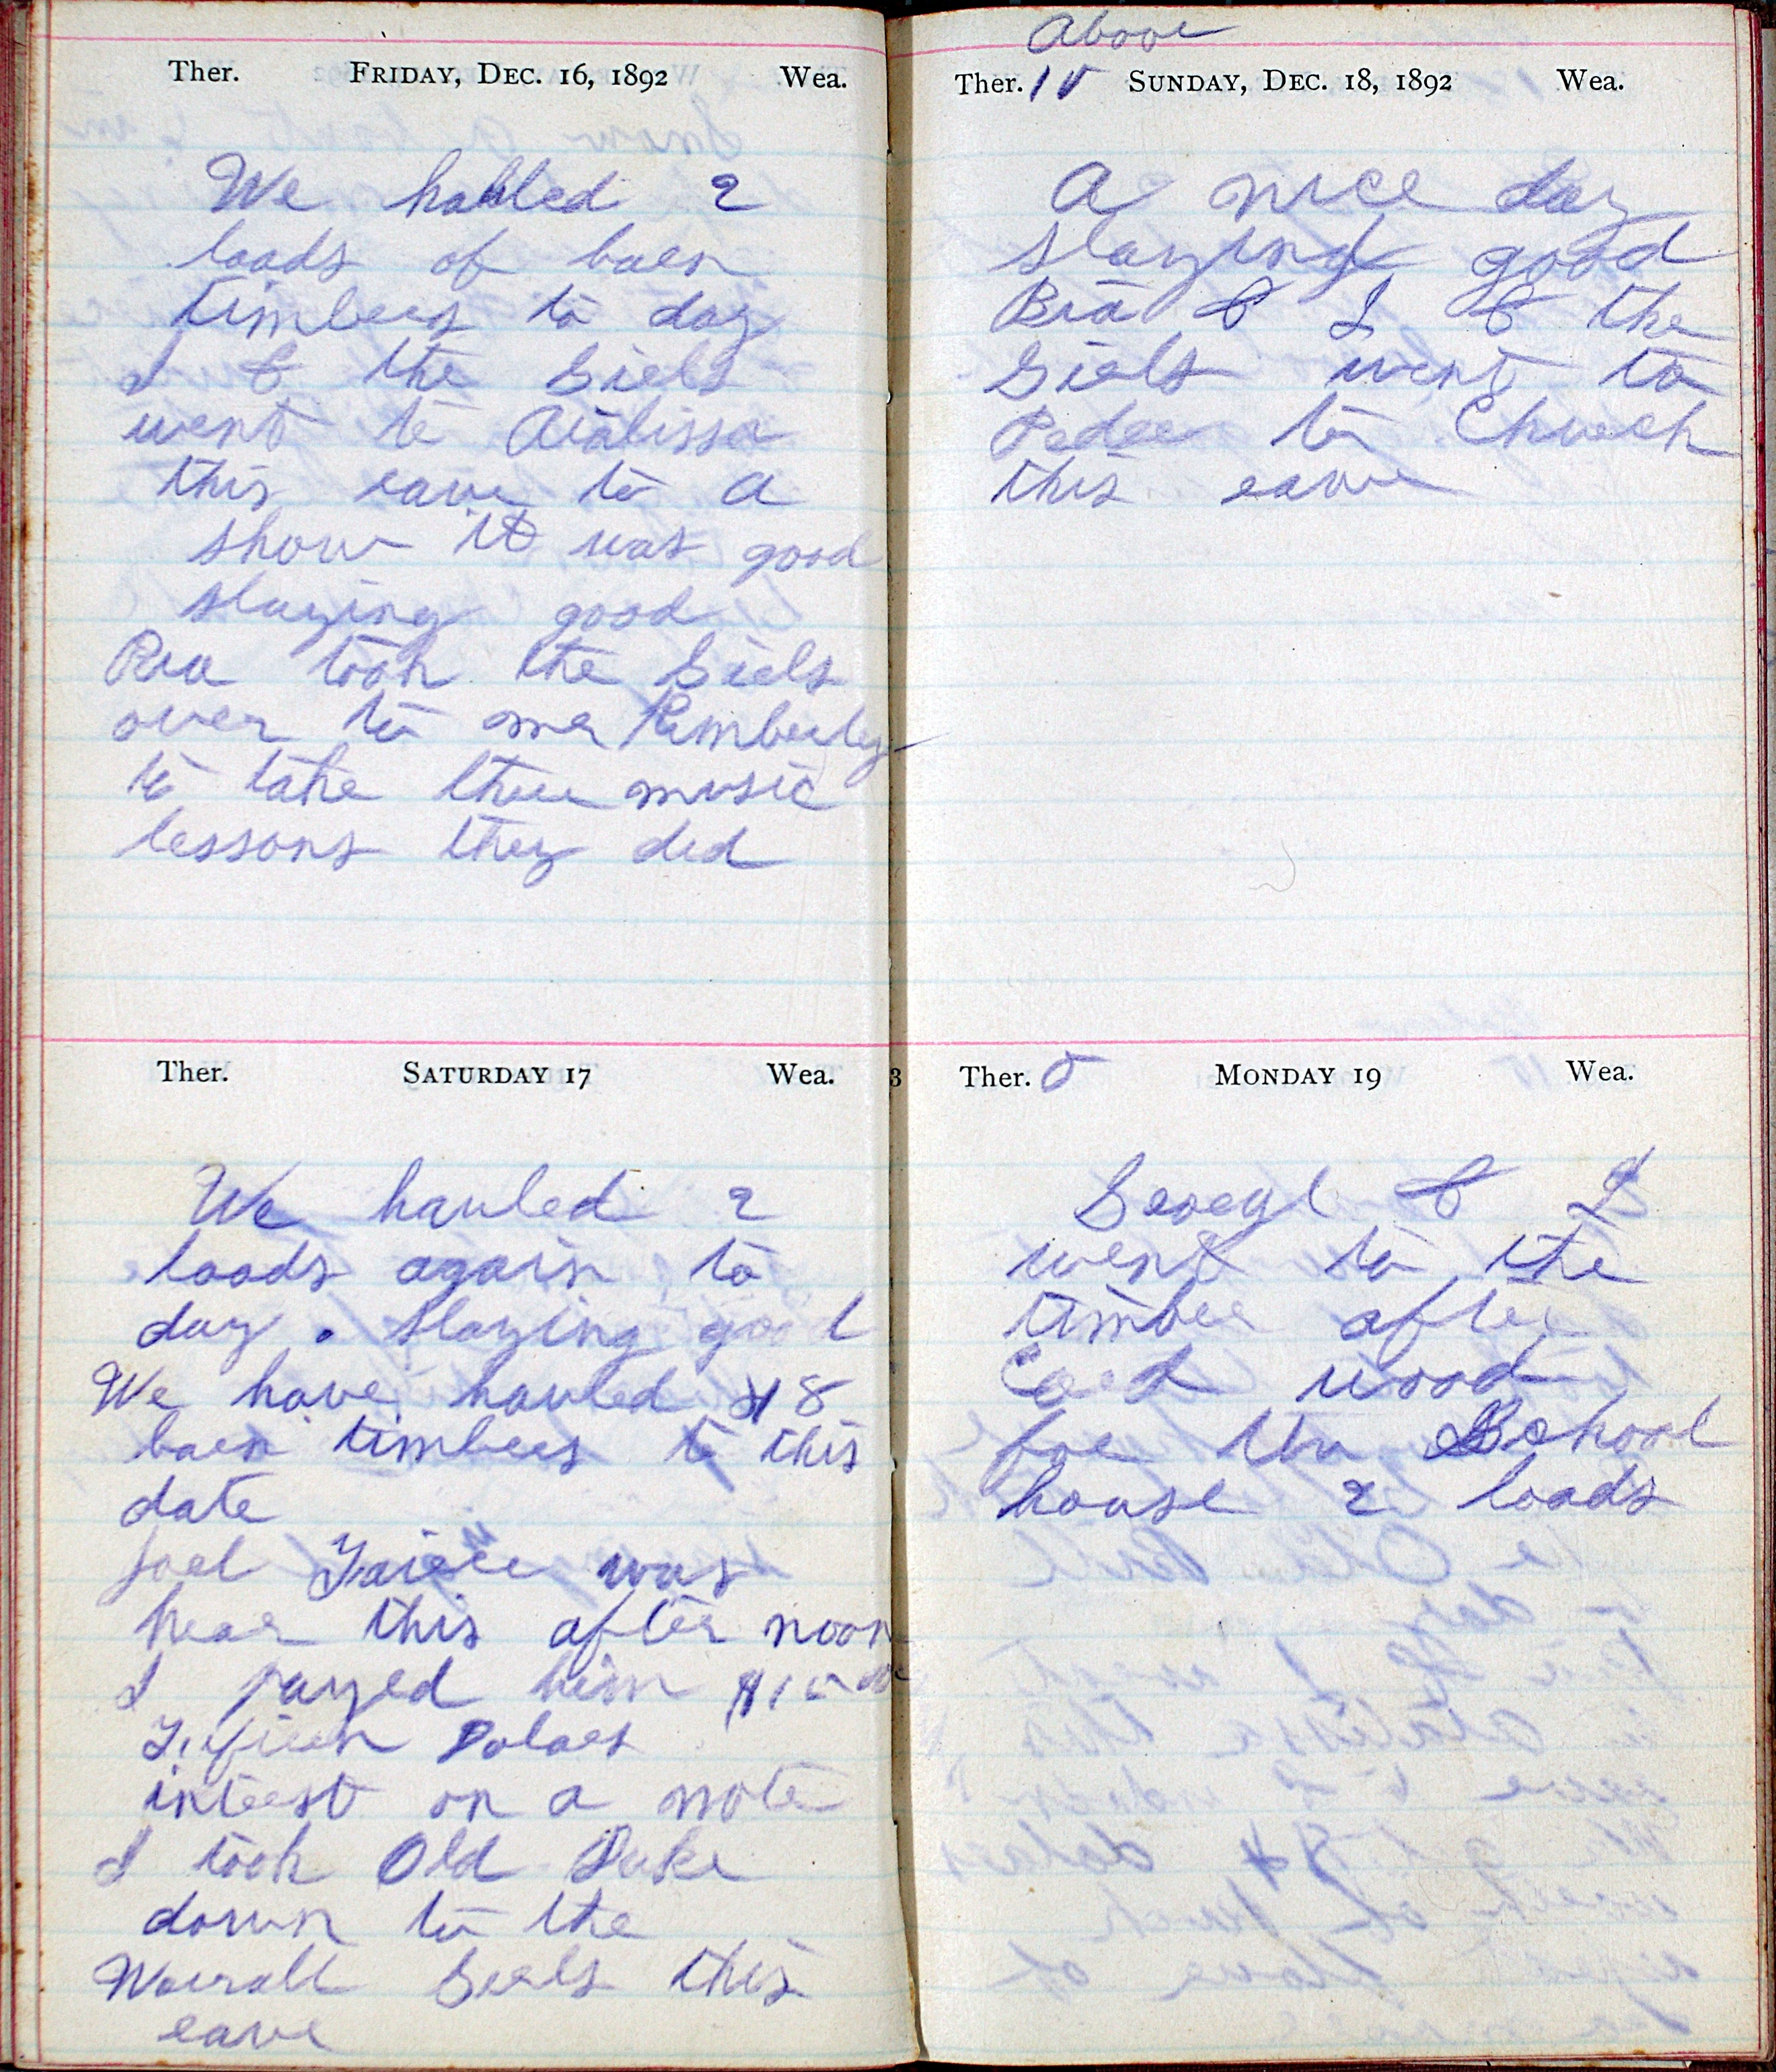 Ther. FRIDAY, DEC. 16, 1892 Wea.
We hauled 2
loads of barn
timbers to day
I & the Girls
went to Atalissa
this eave to a
show it was good
slaying good
Pra took the Girls
over to mr Kimberley
to take there music
lessons they did
Ther. SATURDAY 17 Wea.
We hauled 2
loads again to
day . Slaying good
We have hauled 18
barn timbers to this
date
Joel was
hear this after noon
I payed him $15
Dolars
intrest on a note
I took Old Duke
down to the
Worrall Girls this
eave
Above
Ther. 15 SUNDAY, DEC. 18, 1892 Wea.
A nice day
slaying good
Bra & I & the
Girls went to
Pedee to Church
this eave
3 Ther. 5 MONDAY 19 Wea.
& I
went to the
timber after
Cord wood
for the School
house 2 loads